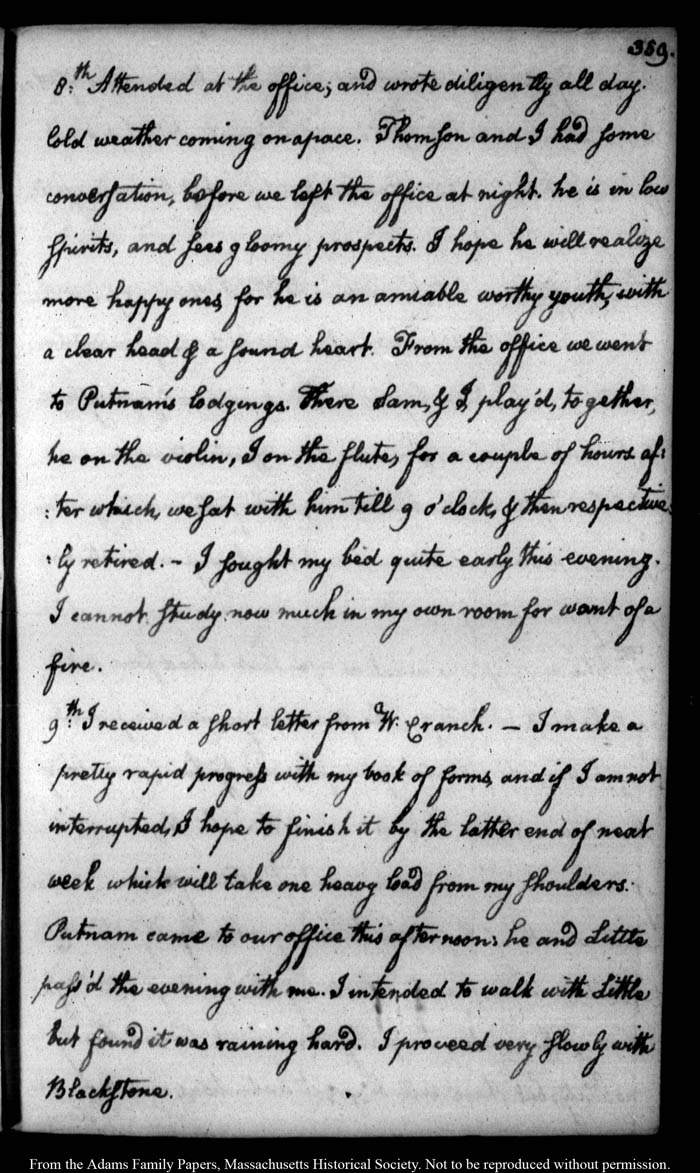 359.
8:th Attended at the office; and wrote diligently all day.
Cold weather coming on apace. Thomson and I had some
conversation, before we left the office at night. he is in low
spirits, and sees gloomy prospects. I hope he will realize
more happy ones, for he is an amiable worthy youth, with
a clear head & a sound heart. From the office we went
to Putnam's lodgings. There Sam, & I, play'd, together,
he on the violin, I on the flute, for a couple of hours af:
:ter which, we sat with him till 9 o'clock, & then respective
:ly retired. – I sought my bed quite early this evening.
I cannot study now much in my own room for want of a
fire.
9:th I received a short letter from W. Cranch. – I make a
pretty rapid progress with my book of forms, and if I am not
interrupted, I hope to finish it by the latter end of next
week which will take one heavy load from my shoulders.
Putnam came to our office this afternoon: he and Little
pass'd the evening with me. I intended to walk with Little
but found it was raining hard. I proceed very slowly with
Blackstone.
From the Adams Family Papers, Massachusetts Historical Society. Not to be reproduced without permission.